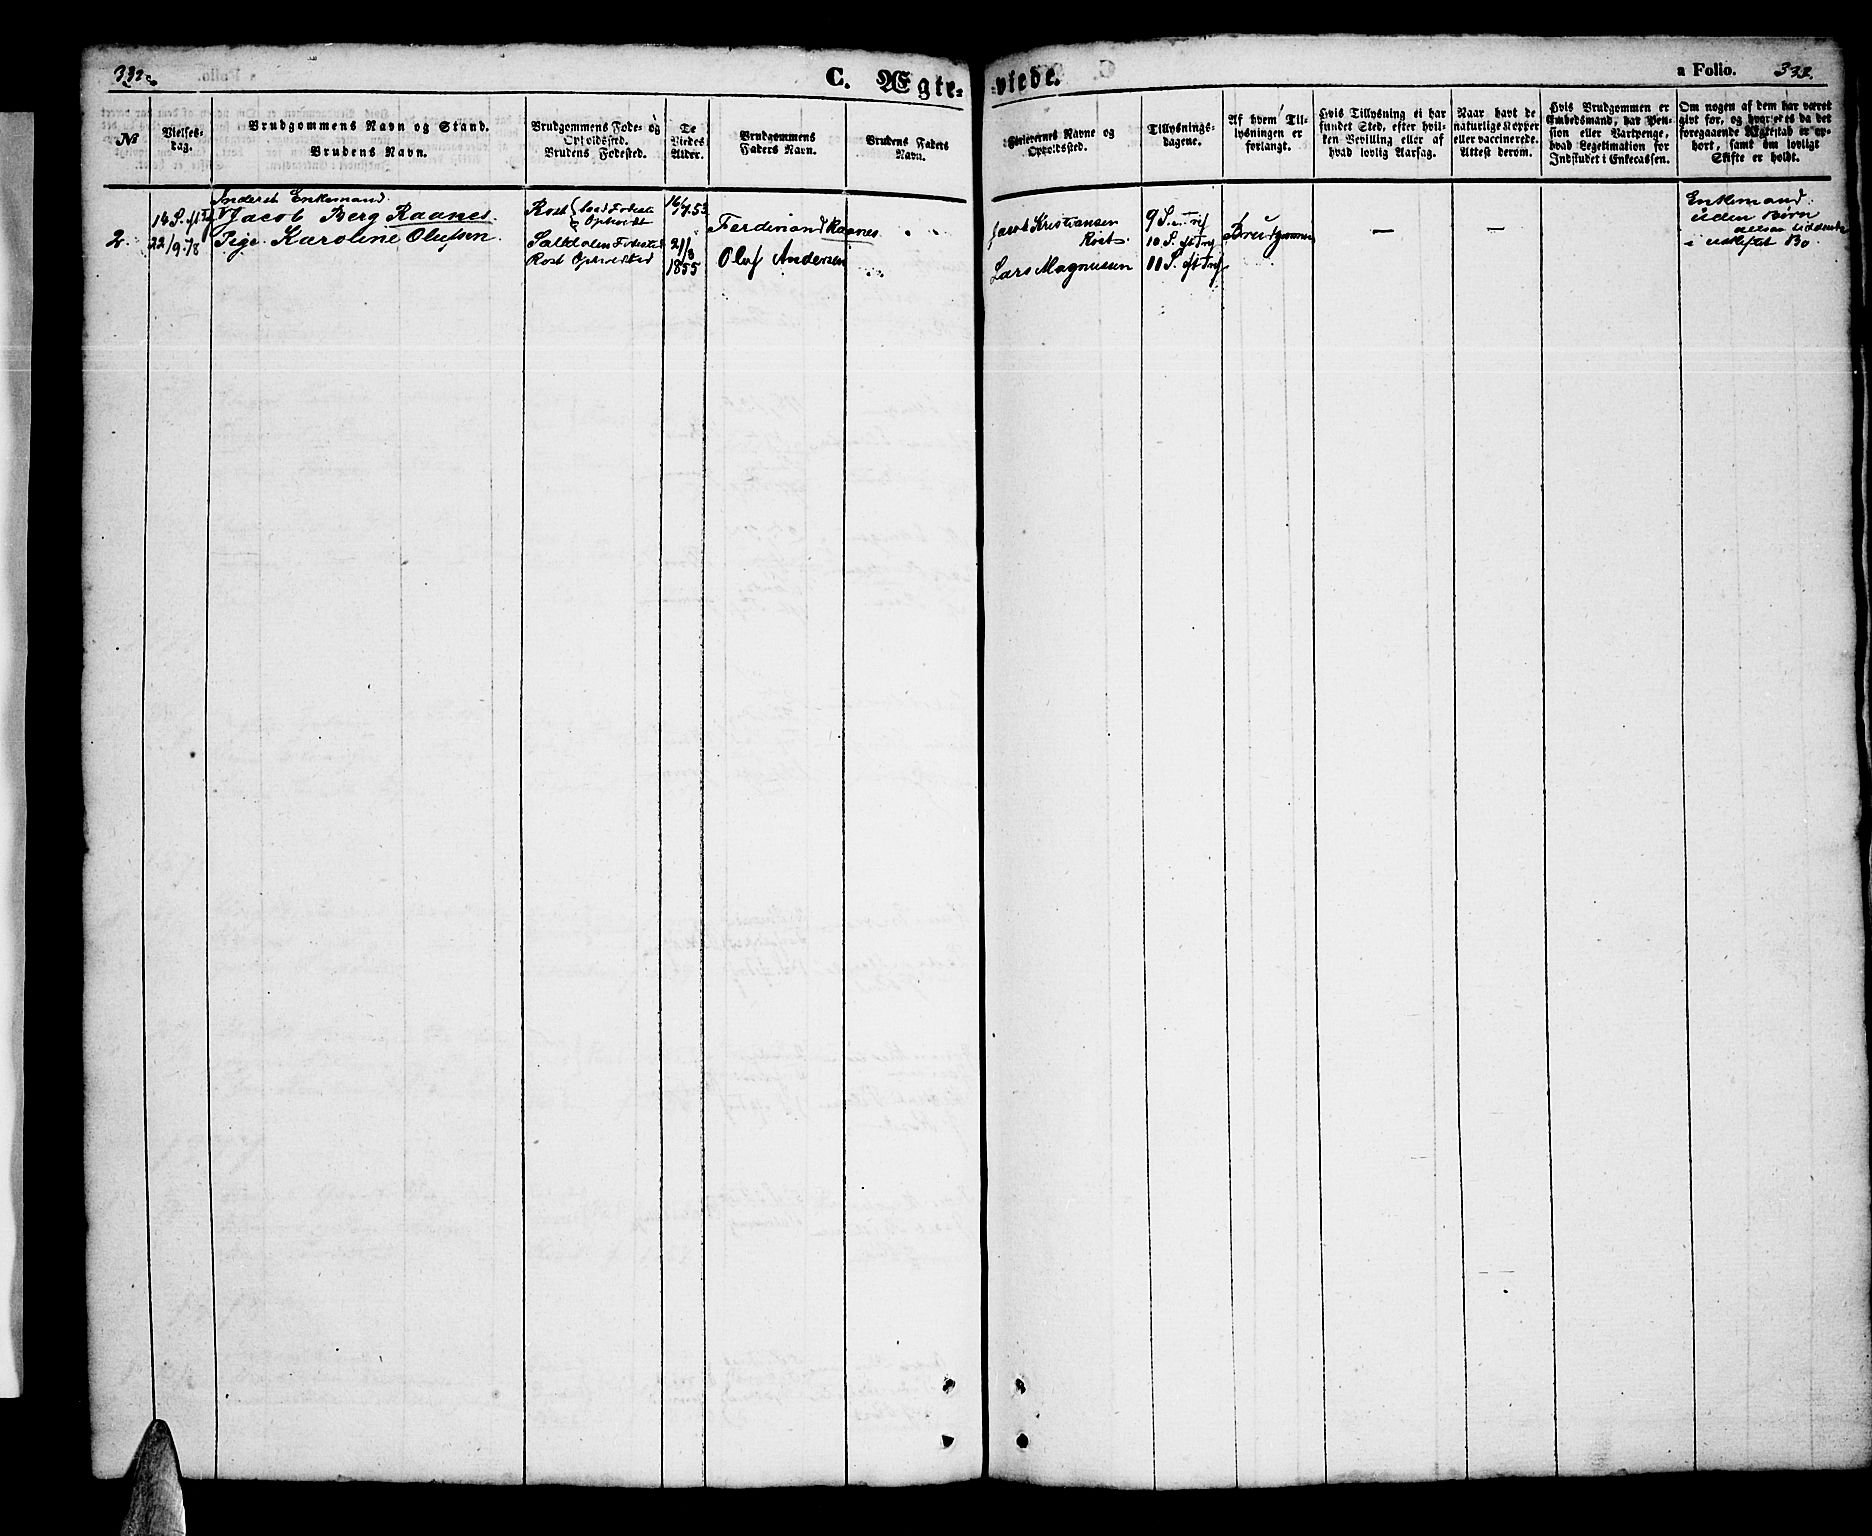 332
C. Ægte-
viede.
a Folio. 332.
№
Vielses-
dag.
Brudgommens Navn og Stand.
Brudens Navn.
Brudgommens Føde- og
Opholdssted.
Brudens Fødested.
De
Viedes
Alder.
Brudgommens
Faders Navn.
Brudens Faders
Navn.
Forlovernes Navne og
Opholdssted.
Tillysnings-
dagene.
Af hvem Til-
lysningen er
forlangt.
Hvis Tillysning ei har
fundet Sted, efter hvil-
ken Bevilling eller af
hvad lovlig Aarsag.
Naar havt de
naturlige Kopper
eller vaccinerede.
Attest derom.
Hvis Brudgommen er
Embedsmand, har Pen-
sion eller Vartpenge,
hvad Legitimation for
Indskudet i Enkecassen.
Om nogen af dem har været
gift før, og hvor; er da det
foregaaende Ægteskab er op-
hørt, samt om lovligt
Skifte er holdt.
2.
22/9.78
Inderst Enkemand
Jacob Berg Raanes
Pige Karoline Olufsen
Røst
Opholdt
Saltdalen Fødested
Røst Opholdsted
16/7.53
21/3
1855
Ferdinand Raanes
Oluf Andersen
Jacob Kristiansen
Røst
Lars Magnussen
9 S. e. Trf
10 S. eft Trf
11 S. eft Trf
Brudgommen
—
—
Enkemand
uden Børn
i uskiftet Bo